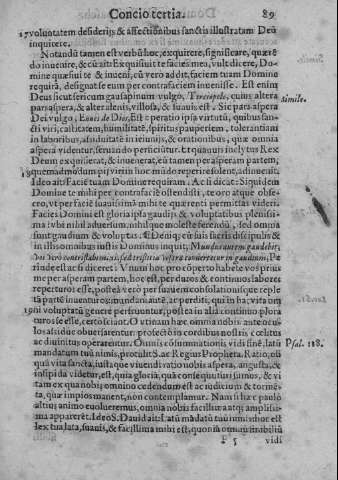 Concio tertia. 89
17 voluntatem desiderijs & affectionibus sanctis illustratam Deũ
inquirere.
Notandũ tamen est verbũ hæc, exquirere, significare, quærẽ
do inuenire, & cũ ait: Exquisiuit te facies mea, vult dicere, Do-
mine quæsiui te & inueni, cũ vero addit, faciem tuam Domine
requirã, designat se eum per contraria inuenisse. Est enim
Deus sicut sericum gausapinum vulgo, cuius altera
pars aspera, & altera lenis, villosa, & suauis est. Sic pars aspera
Simile.
Dei vulgo, de Dios, Est operatio ipsa virtutũ, quibus san-
cti viri, castitatem, humilitatẽ, spiritus pauperiem, tolerantiam
in laboribus, assiduitatẽ in ieiunijs, & orationibus, quæ omnia
aspera videntur, secundo perficiũtur. Et quamuis inclytus Rex
Deum exquisierat, & inuenerat, eũ tamen per asperam partem,
18 quemadmodum pij viri in hoc mũdo reperire solent, adinuenit.
Ideo ait: Faciẽ tuam Domine requiram. Ac si dicat: Siquidem
Domine te mihi per contrariẽ ostendisti, te oro atque obse-
cro, vt per faciẽ suauissimã mihi te quærenti permittas videri.
Facies Domini est gloria ipsa gaudijs & voluptatibus plenissi-
ma: vbi nihil aduersum, nihilque molestẽ ferendũ, sed omnia
sunt gaudium & voluptas. Deniq; cũ suis fuerit discipulis &
in illis omnibus iustis Dominus inquit, Mundus autem gaudebit,
vos verò contristabimini, sed tristitia vestra conuertetur in gaudium. Pe
rinde est ac si diceret: Vnum hoc pro cõperto habete vos prius
me per asperam partem, hoc est, per duros & continuos labores
reperturos esse, postea verò per suauem consolationisque reple
tã partẽ inuenturos: mundani autẽ, ac perditi, qui in hac vita om
19 ni voluptatũ genere perfruuntur, postea in alia continuo plora
turos se esse, certò sciant. O vtinam hæc omnia nobis ante ocu-
los assidue obuersarentur: profectò in cordibus nostris, cœlitus
ac diuinitus operarentur. Omnis cõsumnationis vidi finẽ, latũ
mandatum tuũ nimis, proculit S. ac Regius Propheta. Ratio, ob
Psal. 118.
quã vita sancta, iustaque viuendi ratio nobis aspera, angusta, &
insipida videtur, est, quia gloriã, quã consequimur, summũ, & vi
tam ex qua nobis omnino cedendum est ac iudicium & tormẽ-
ta, quæ impios manent, non contemplamur. Nam si hæc paulò
altius animo euolueremus, omnia nobis facillima atq; amplissi-
ma apparerẽt. Ideo S. Dauid ait: Latũ mãdatũ tuũ nimis, hoc est
lex tua lata, suauis, & facillima mihi est, quoniã omniũ mobiliũ
F 5 vidi